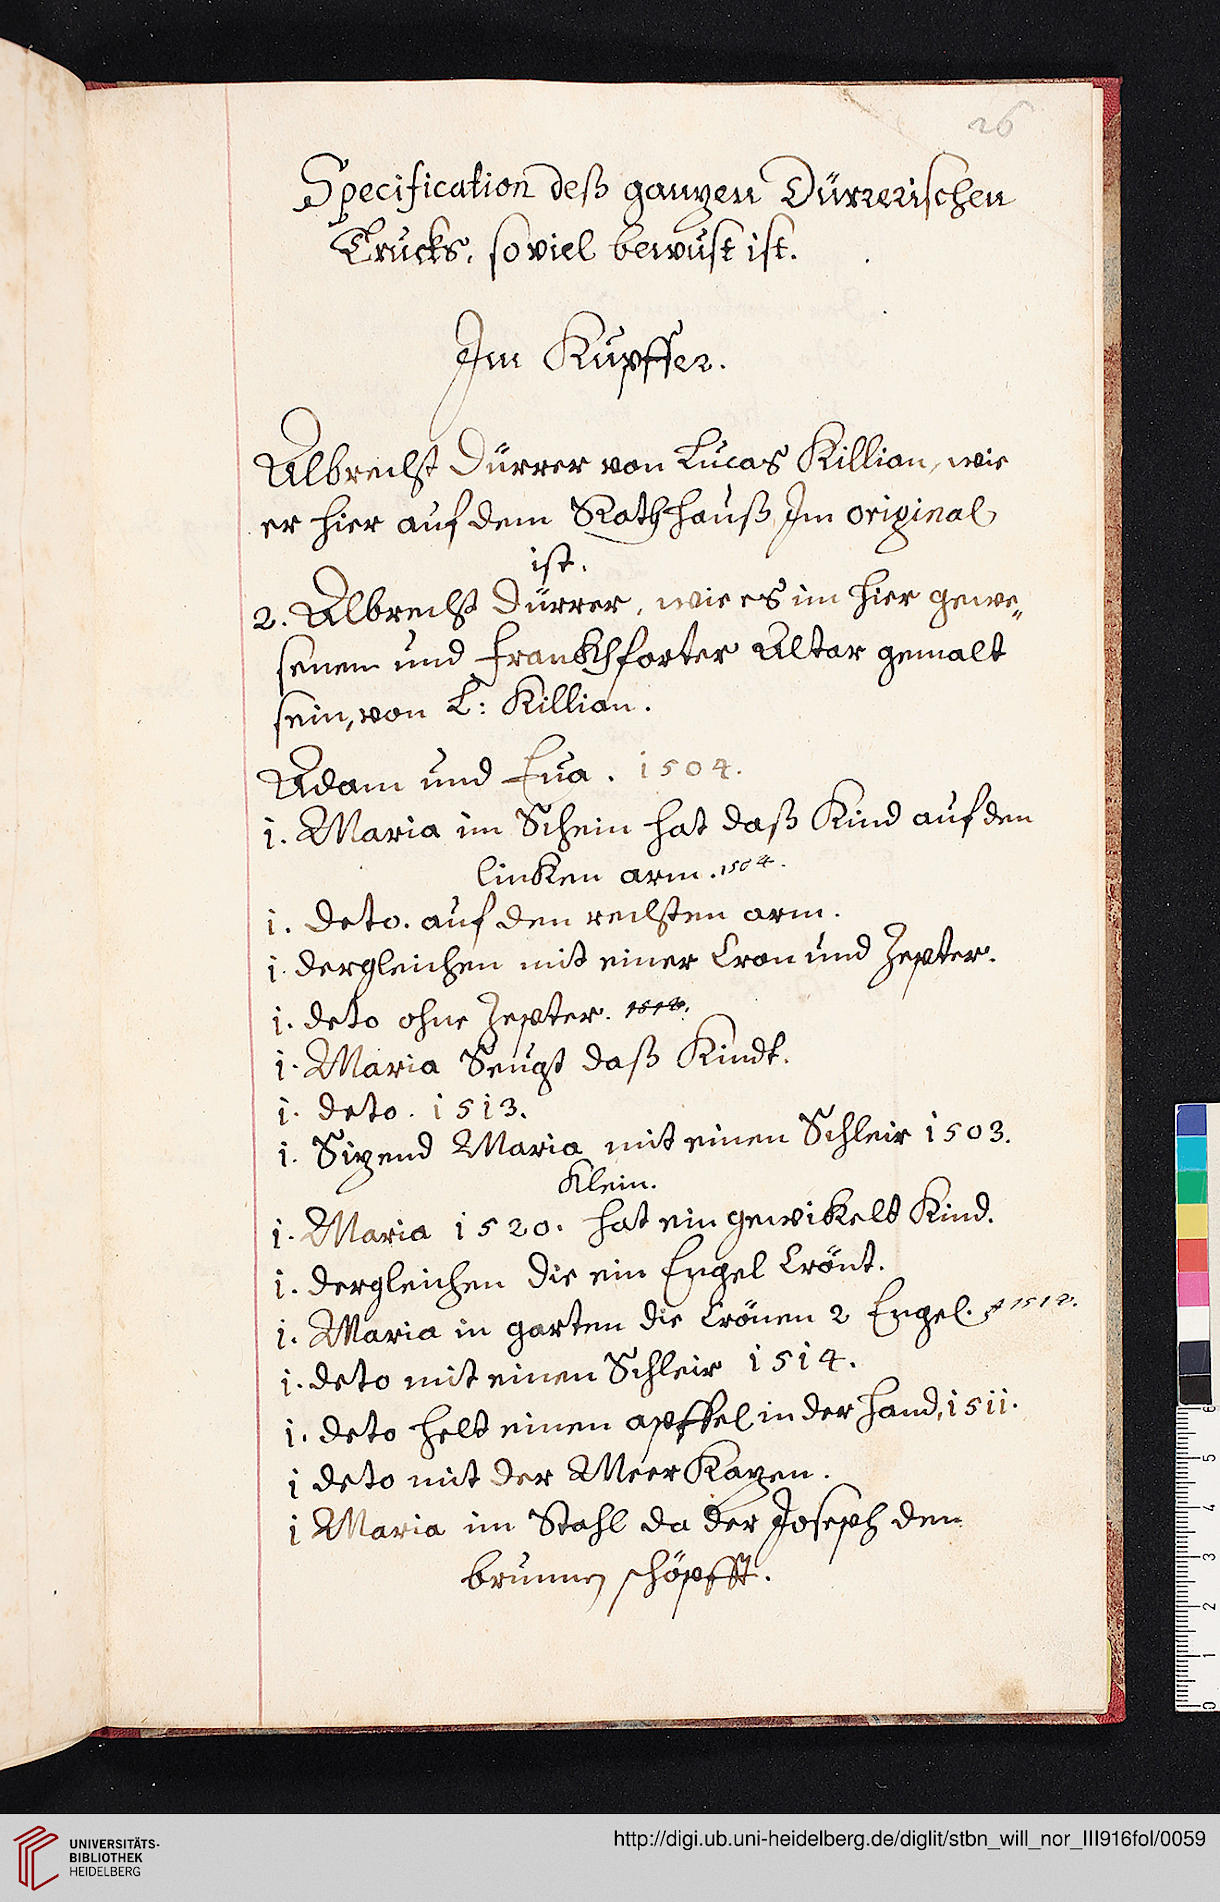 26
Specification deß ganzen Dürrerischen
Trucks, so viel bewust ist.
Im Kupffer.
Albrecht Dürrer von Lucas Killian, wie
er hier auf dem Rathhauß Im original
ist.
2. Albrecht Dürrer, wie es im hier gewe„
senen und Frankhforter Altar gemalt
sein, von L: Killian.
Adam und Eua. 1504.
i. Maria im Schein hat daß Kind auf den
linken arm. 1504.
i. deto. auf den rechten arm.
i. dergleichen mit einer Cron und Zepter.
i. deto ohne Zepter.
i. Maria Seugt daß Kindt.
i. deto. 1513.
i. Sizend Maria mit einen Schleir 1503.
Klein.
i. Maria 1520. hat ein gewikelt Kind.
i. dergleichen die ein Engel Crönt.
i. Maria in garten die Crönen 2 Engel.
i. deto mit einen Schleir 1514.
i. deto helt einen apffel in der hand, 1511.
i deto mit der Meer Kazen.
i Maria im Stahl da der Joseph den
brunnen schöpfft.
UNIVERSITÄTS-
BIBLIOTHEK
HEIDELBERG
http://digi.ub.uni-heidelberg.de/diglit/stbn_will_nor_III916fol/0059
6
5
4
3
2
1
0